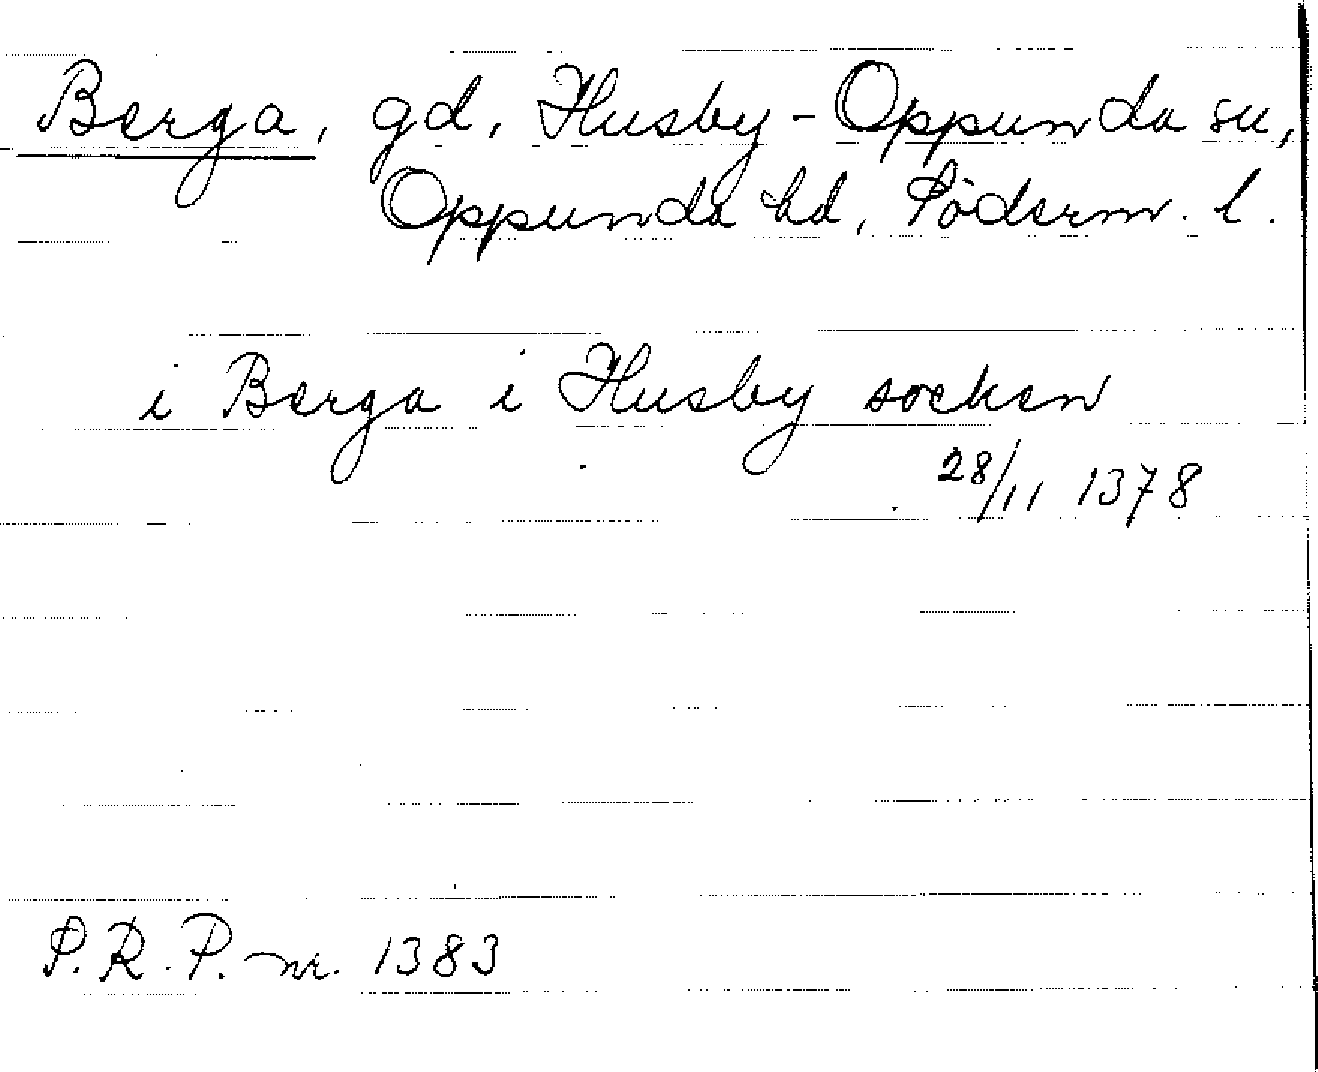 Berga, gd, Husby-Oppunda sn,
Oppunda hd, Söderm. l.
i Berga i Husby socken
28/11 1378
S.R.P. nr. 1383